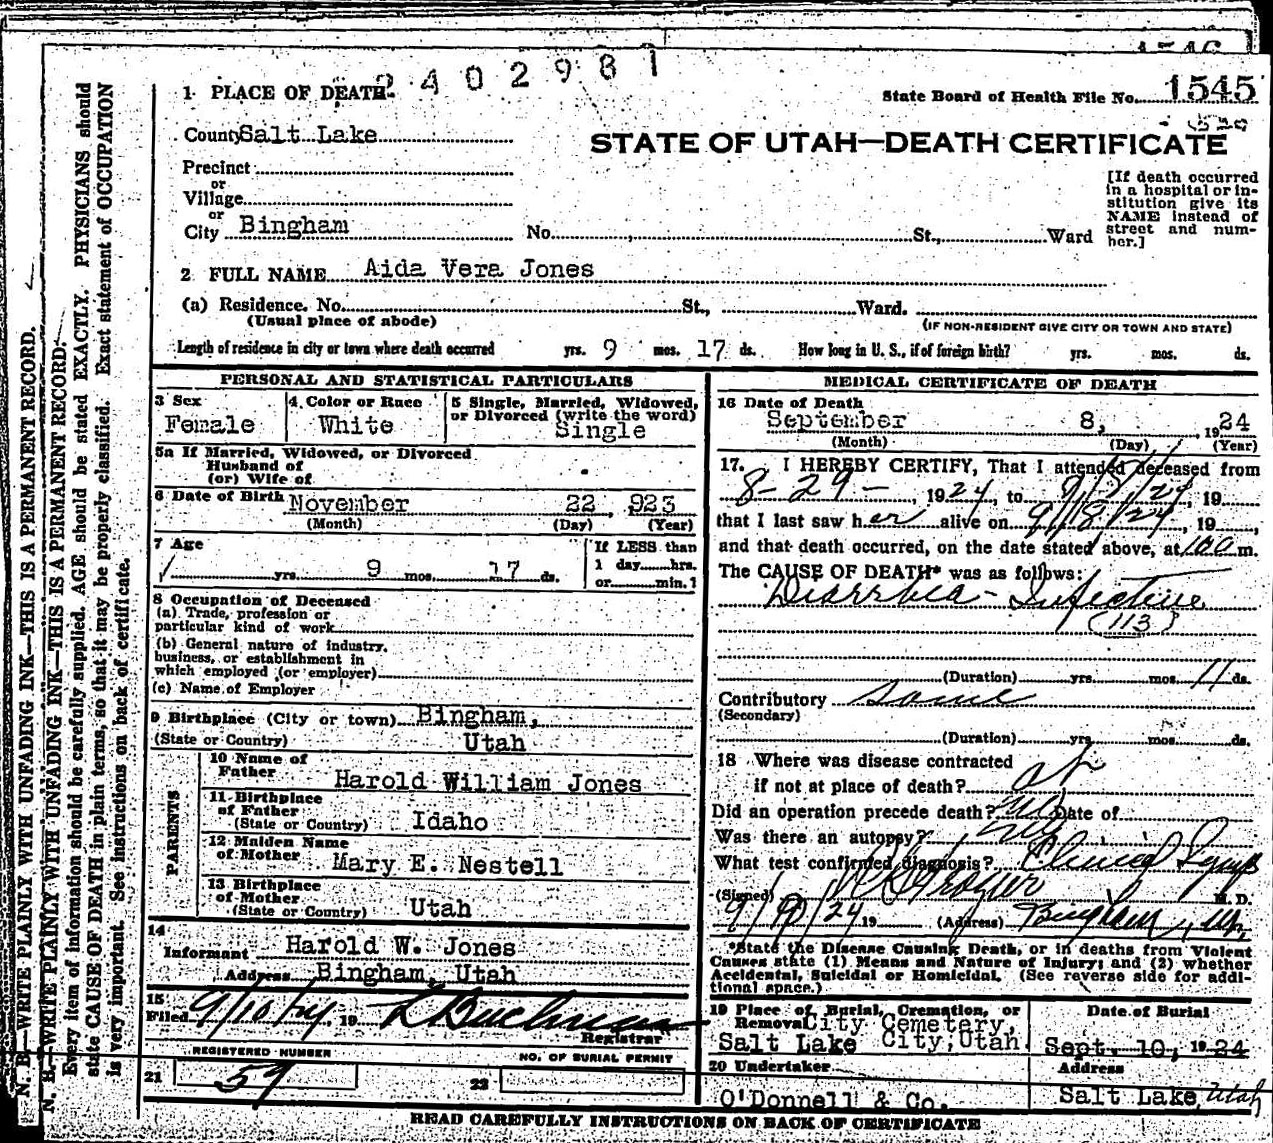 2402981
1 PLACE OF DEATH
State Board of Health File No. 1545
County Salt Lake
STATE OF UTAH—DEATH CERTIFICATE
Precinct
or
Village
or
City Bingham No. St., Ward
[If death occurred
in a hospital or in-
stitution give its
NAME instead of
street and num-
ber.]
2 FULL NAME Aida Vera Jones
(a) Residence. No. St., Ward.
(Usual place of abode)
(IF NON-RESIDENT GIVE CITY OR TOWN AND STATE)
Length of residence in city or town where death occurred yrs. 9 mos. 17 ds. How long in U. S., if of foreign birth? yrs. mos. ds.
PERSONAL AND STATISTICAL PARTICULARS
3 Sex
Female
4 Color or Race
White
5 Single, Married, Widowed,
or Divorced (write the word)
Single
5a If Married, Widowed, or Divorced
Husband of
(or) Wife of
6 Date of Birth November 22, 923
(Month) (Day) (Year)
7 Age
1 yrs. 9 mos. 17 ds.
If LESS than
1 day hrs.
or min.?
8 Occupation of Deceased
(a) Trade, profession or
particular kind of work
(b) General nature of industry,
business, or establishment in
which employed (or employer)
(c) Name of Employer
9 Birthplace (City or town) Bingham,
(State or Country) Utah
PARENTS
10 Name of
Father Harold William Jones
11 Birthplace
of Father
(State or Country) Idaho
12 Maiden Name
of Mother Mary E. Nestell
13 Birthplace
of Mother
(State or Country) Utah
14
Informant Harold W. Jones
Address Bingham, Utah
15
Filed 9/10/24 19 Buchman
Registrar
REGISTERED NUMBER
21 59
NO. OF BURIAL PERMIT
22
MEDICAL CERTIFICATE OF DEATH
16 Date of Death
September 8, 1924
(Month) (Day) (Year)
17. I HEREBY CERTIFY, That I attended deceased from
8-29-, 1924, to 9/8/24, 19
that I last saw her alive on 9/8/24, 19,
and that death occurred, on the date stated above, at 100 m.
The CAUSE OF DEATH* was as follows:
Diarrhea - Infective
(113)
(Duration) yrs. mos. 11 ds.
Contributory same
(Secondary)
(Duration) yrs. mos. ds.
18 Where was disease contracted
if not at place of death? at
Did an operation precede death? No Date of
Was there an autopsy? No
What test confirmed diagnosis? Clinical Symps
(Signed) M. D.
9/10/24 19 (Address) Bingham, Ut.
*State the Disease Causing Death, or in deaths from Violent
Causes state (1) Means and Nature of Injury; and (2) whether
Accidental, Suicidal or Homicidal. (See reverse side for addi-
tional space.)
19 Place of Burial, Cremation, or
Removal City Cemetery,
Salt Lake City, Utah.
Date of Burial
Sept. 10, 1924
20 Undertaker
O'Donnell & Co.
Address
Salt Lake, Utah
READ CAREFULLY INSTRUCTIONS ON BACK OF CERTIFICATE
N. B.—WRITE PLAINLY WITH UNFADING INK—THIS IS A PERMANENT RECORD.
N. B.—WRITE PLAINLY WITH UNFADING INK—THIS IS A PERMANENT RECORD.
Every item of information should be carefully supplied. AGE should be stated EXACTLY. PHYSICIANS should
state CAUSE OF DEATH in plain terms, so that it may be properly classified. Exact statement of OCCUPATION
is very important. See instructions on back of certificate.